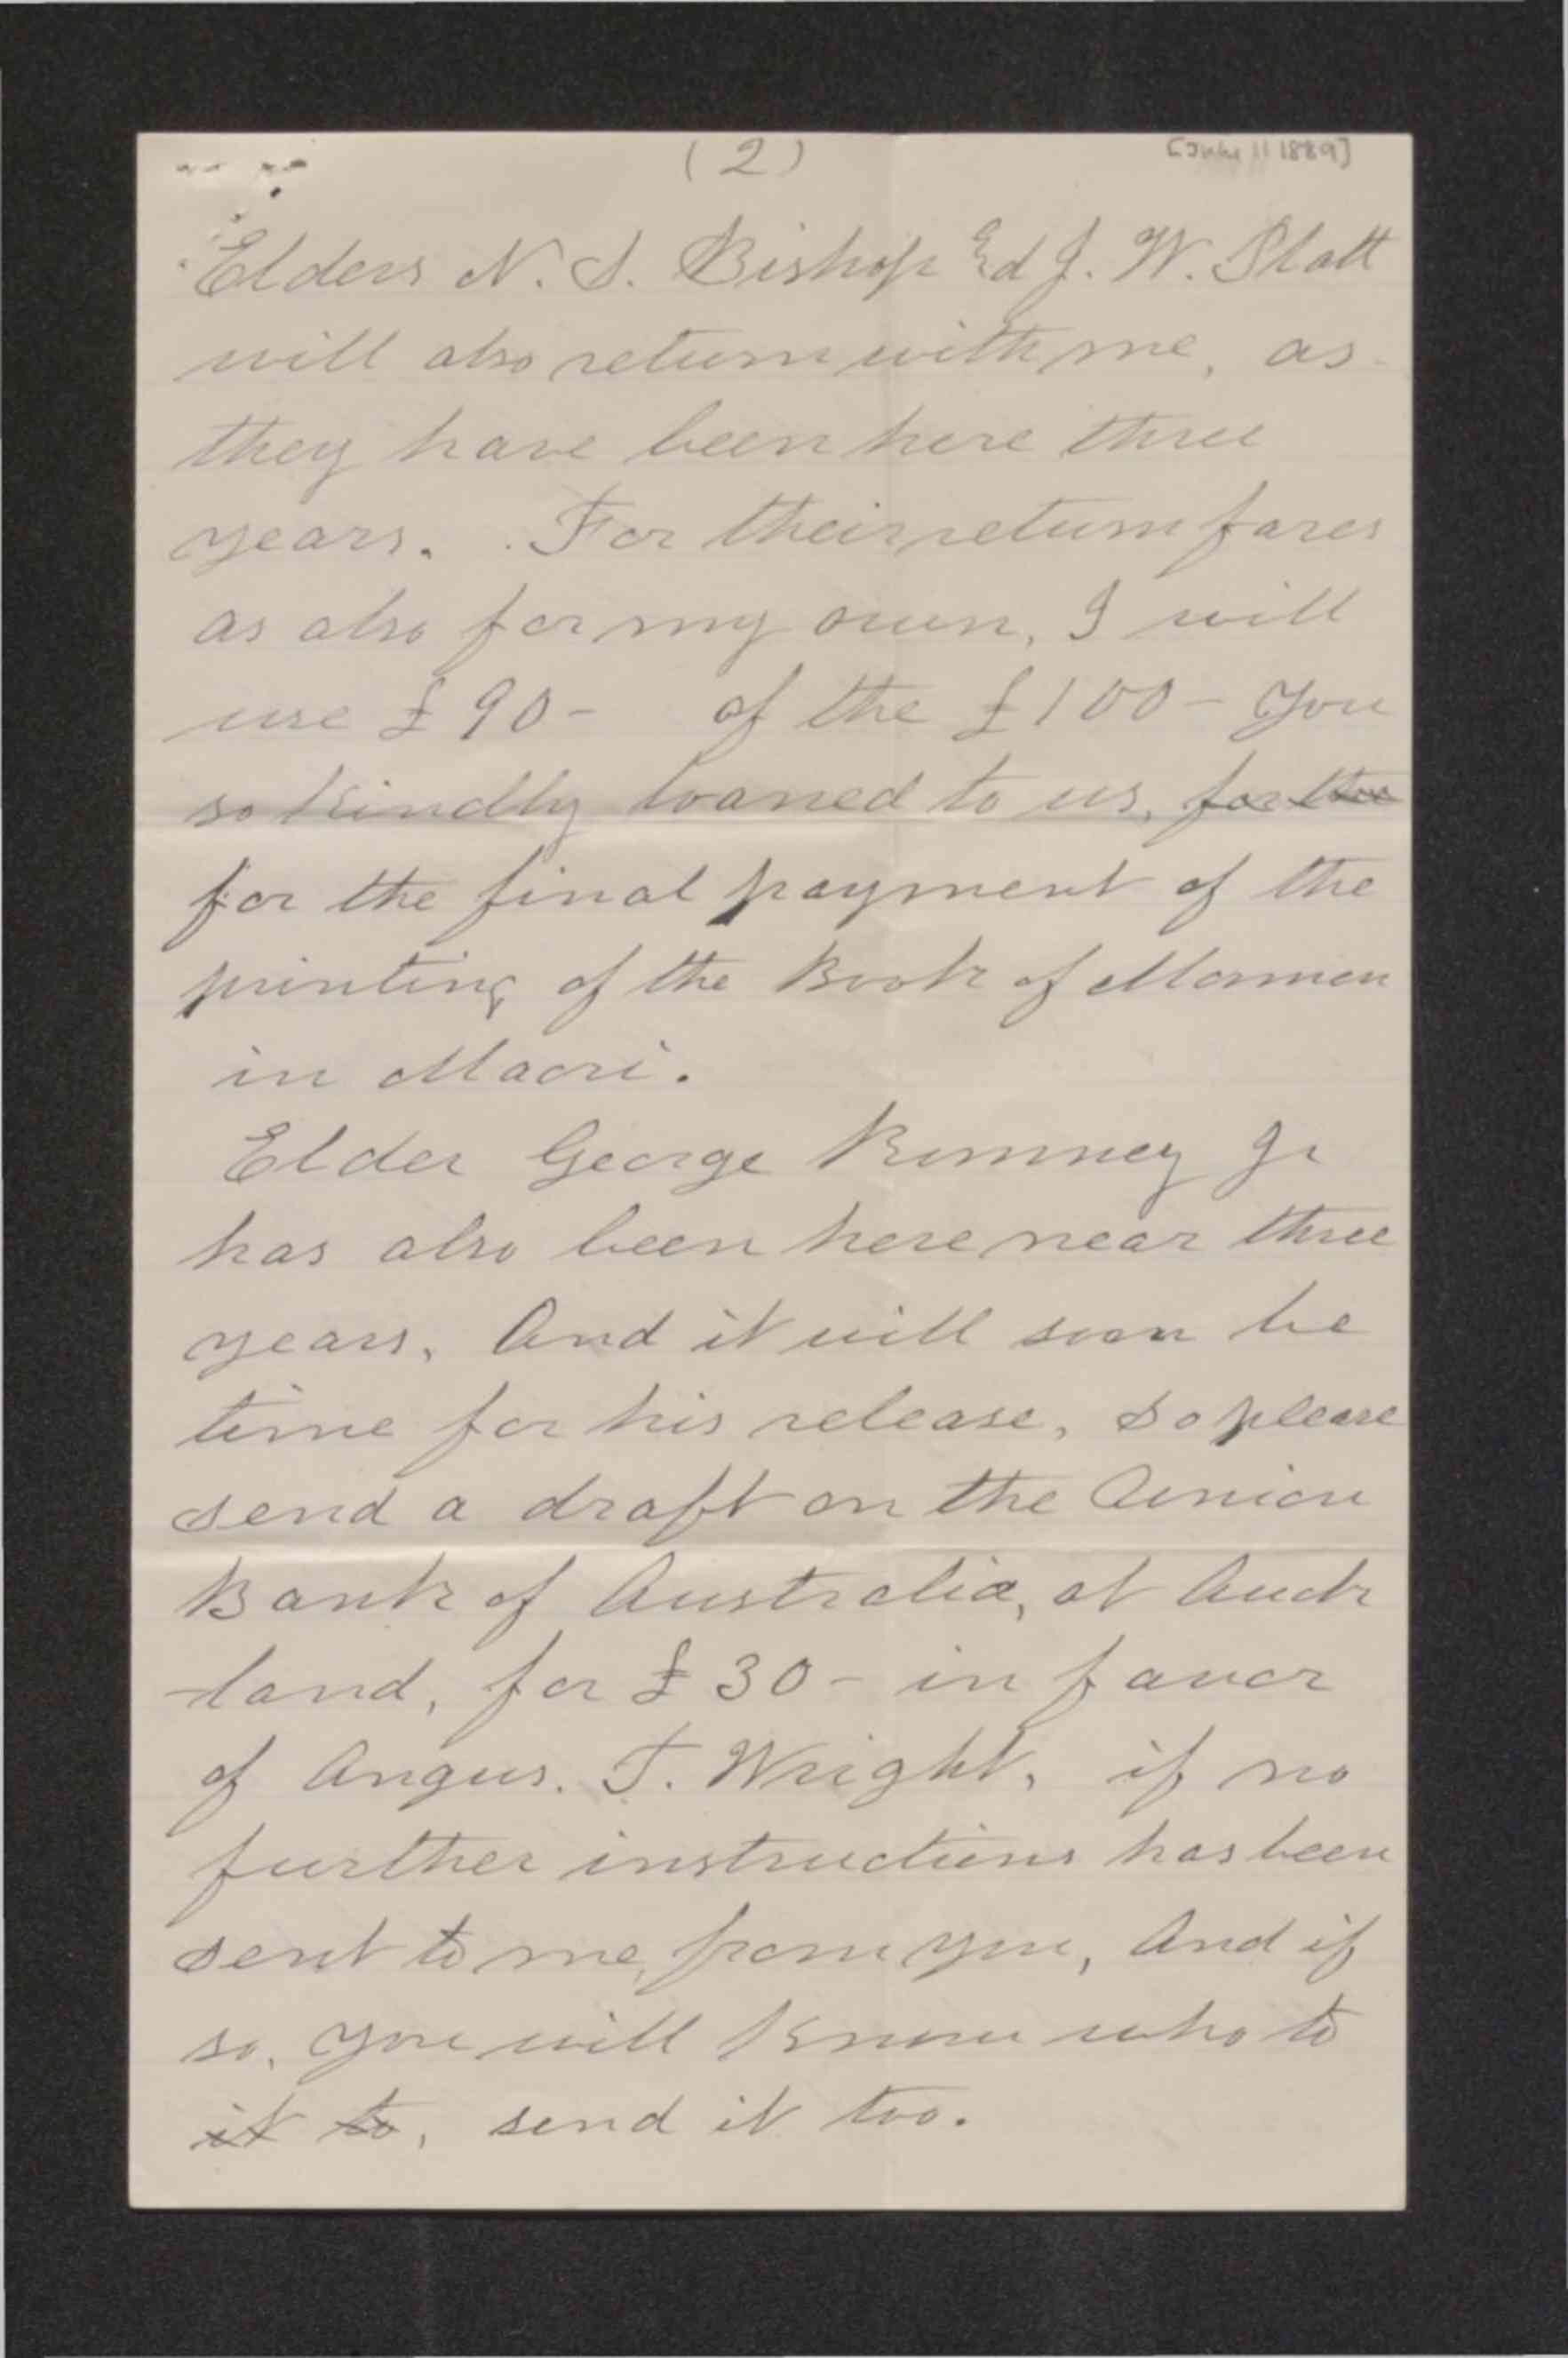 (2)
[July 11 1889]
Elders N. S. Bishop & J. W. Platt
will also return with me, as
they have been here three
years. For their return fares
as also for my own, I will
use £90- of the £100- you
so kindly loaned to us, for the
for the final payment of the
printing of the Book of Mormon
in Maori.
Elder George Romney Jr
has also been here near three
years, And it will soon be
time for his release, so please
send a draft on the Union
Bank of Australia, at Auck
-land, for £30- in favor
of Angus. T. Wright, if no
further instructions has been
sent to me, from you, And if
so, you will know who to
it to, send it too.